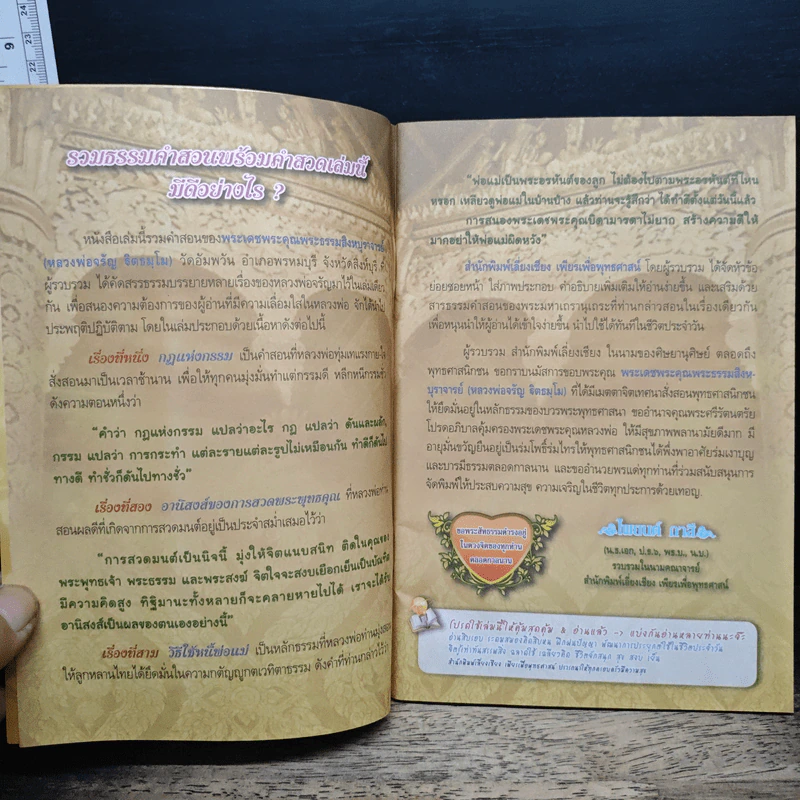 รวมธรรมคำสอนพร้อมคำสวดเล่มนี้
มีดีอย่างไร ?
หนังสือเล่มนี้รวมคำสอนของพระเดชพระคุณพระธรรมสิงหบุราจารย์
(หลวงพ่อจรัญ ฐิตธมฺโม) วัดอัมพวัน อำเภอพรหมบุรี จังหวัดสิงห์บุรี
ผู้รวบรวม ได้คัดสรรธรรมบรรยายหลายเรื่องของหลวงพ่อจรัญมาไว้ในเล่มเดียว
กัน เพื่อสนองความต้องการของผู้อ่านที่มีความเลื่อมใสในหลวงพ่อ จักได้นำไป
ประพฤติปฏิบัติตาม โดยในเล่มประกอบด้วยเนื้อหาดังต่อไปนี้
เรื่องที่หนึ่ง กฎแห่งกรรม เป็นคำสอนที่หลวงพ่อทุ่มเทแรงกายใจ
สั่งสอนมาเป็นเวลาช้านาน เพื่อให้ทุกคนมุ่งมั่นทำแต่กรรมดี หลีกหนีกรรมชั่ว
ดังความตอนหนึ่งว่า
"คำว่า กฎแห่งกรรม แปลว่าอะไร กฎ แปลว่า ดันและผลัก
กรรม แปลว่า การกระทำ แต่ละรายแต่ละรูปไม่เหมือนกัน ทำดีก็ดันไป
ทางดี ทำชั่วก็ดันไปทางชั่ว"
เรื่องที่สอง อานิสงส์ของการสวดพระพุทธคุณ ที่หลวงพ่อท่าน
สอนผลดีที่เกิดจากการสวดมนต์อยู่เป็นประจำสม่ำเสมอไว้ว่า
"การสวดมนต์เป็นนิจนี้ มุ่งให้จิตแนบสนิท ติดในคุณของ
พระพุทธเจ้า พระธรรม และพระสงฆ์ จิตใจจะสงบเยือกเย็นเป็นบัณฑิต
มีความคิดสูง ทิฐิมานะทั้งหลายก็จะคลายหายไปได้ เราจะได้รับ
อานิสงส์เป็นผลของตนเองอย่างนี้"
เรื่องที่สาม วิธีใช้หนี้พ่อแม่ เป็นหลักธรรมที่หลวงพ่อท่านมุ่งสอน
ให้ลูกหลานไทยได้ยึดมั่นในความกตัญญูกตเวทิตาธรรม ดังคำที่ท่านกล่าวไว้ว่า
"พ่อแม่เป็นพระอรหันต์ของลูก ไม่ต้องไปตามพระอรหันต์ที่ไหน
หรอก เหลียวดูพ่อแม่ในบ้านบ้าง แล้วท่านจะรู้สึกว่า ได้ทำดีตั้งแต่วันนี้แล้ว
การสนองพระเดชพระคุณบิดามารดาไม่ยาก สร้างความดีให้
มากอย่าให้พ่อแม่ผิดหวัง"
สำนักพิมพ์เลี่ยงเชียง เพียรเพื่อพุทธศาสน์ โดยผู้รวบรวม ได้จัดหัวข้อ
ย่อยซอยหน้า ใส่ภาพประกอบ คำอธิบายเพิ่มเติมให้อ่านง่ายขึ้น และเสริมด้วย
สารธรรมคำสอนของพระมหาเถรานุเถระที่ท่านกล่าวสอนในเรื่องเดียวกัน
เพื่อหนุนนำให้ผู้อ่านได้เข้าใจง่ายขึ้น นำไปใช้ได้ทันทีในชีวิตประจำวัน
ผู้รวบรวม สำนักพิมพ์เลี่ยงเชียง ในนามของศิษยานุศิษย์ ตลอดถึง
พุทธศาสนิกชน ขอกราบนมัสการขอบพระคุณ พระเดชพระคุณพระธรรมสิงห-
บุราจารย์ (หลวงพ่อจรัญ ฐิตธมฺโม) ที่ได้มีเมตตาจิตเทศนาสั่งสอนพุทธศาสนิกชน
ให้ยึดมั่นอยู่ในหลักธรรมของบวรพระพุทธศาสนา ขออำนาจคุณพระศรีรัตนตรัย
โปรดอภิบาลคุ้มครองพระเดชพระคุณหลวงพ่อ ให้มีสุขภาพพลานามัยดีมาก มี
อายุมั่นขวัญยืนอยู่เป็นร่มโพธิ์ร่มไทรให้พุทธศาสนิกชนได้พึ่งพาอาศัยร่มเงาบุญ
และบารมีธรรมตลอดกาลนาน และขออำนวยพรแด่ทุกท่านที่ร่วมสนับสนุนการ
จัดพิมพ์ให้ประสบความสุข ความเจริญในชีวิตทุกประการด้วยเทอญ.
ขอพระสัทธรรมดำรงอยู่
ในดวงจิตของทุกท่าน
ตลอดกาลนาน
(น.ธ.เอก, ป.ธ.๖, พธ.บ., น.บ.)
รวบรวมในนามคณาจารย์
สำนักพิมพ์เลี่ยงเชียง เพียรเพื่อพุทธศาสน์
โปรดใช้เล่มนี้ให้คุ้มสุดคุ้ม & อ่านแล้ว -> แบ่งกันอ่านหลายท่านนะจ๊ะ